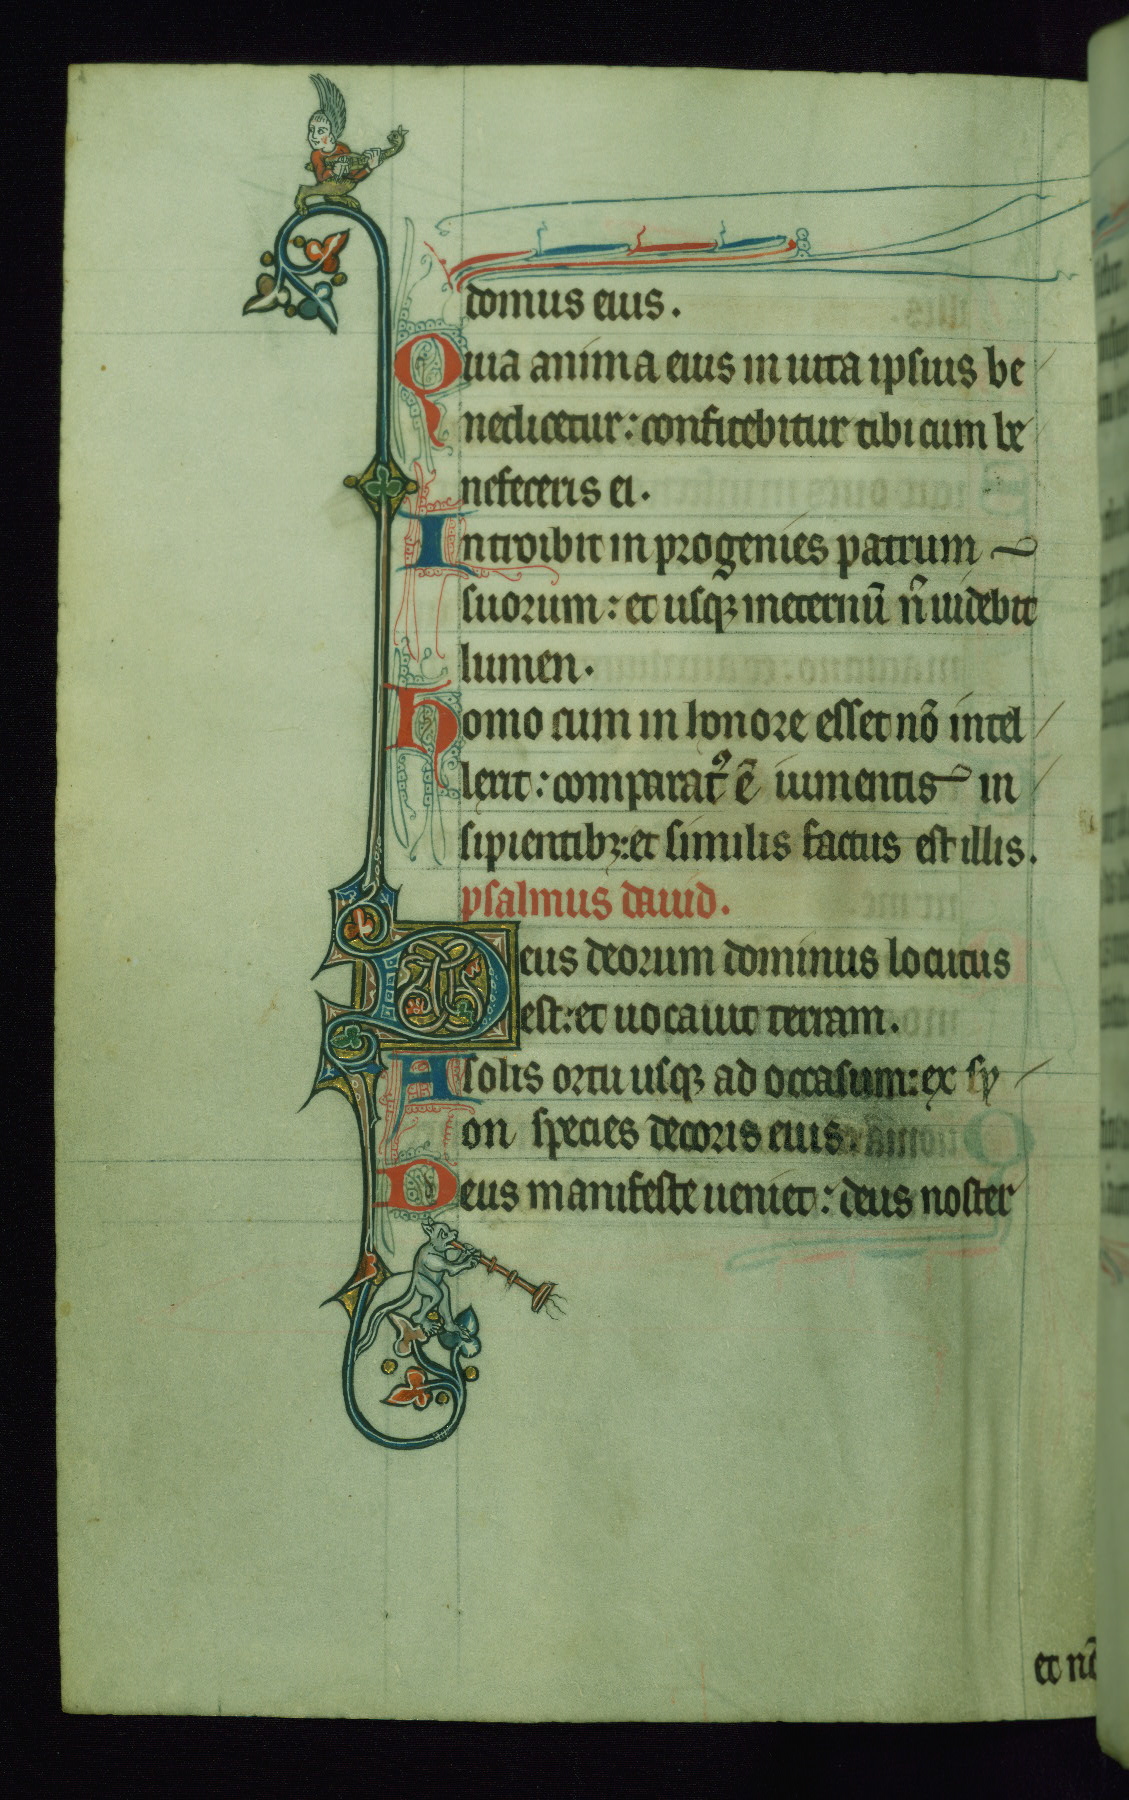 domus eius.
Quia anima eius in uita ipsius be
nedicetur: confitebitur tibi cum be
nefeceris ei.
Introibit in progenies patrum
suorum: et usq; ineternū n̄ uidebit
lumen.
homo cum in honore esset nō intel
lexit: comparatꝰ ē iumentis in
sipientibꝫ: et similis factus est illis.
psalmus dauid.
Deus deorum dominus locutus
est: et uocauit terram.
A solis ortu usqꝫ ad occasum: ex sy
on species decoris eius.
Deus manifeste ueniet: deus noster
et nō